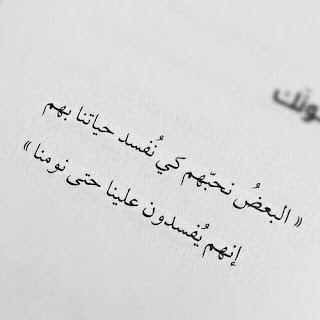 « البعضُ نحبّهم كي نُفسد حياتنا بهم
إنهم يُفسدون علينا حتى نومنا »